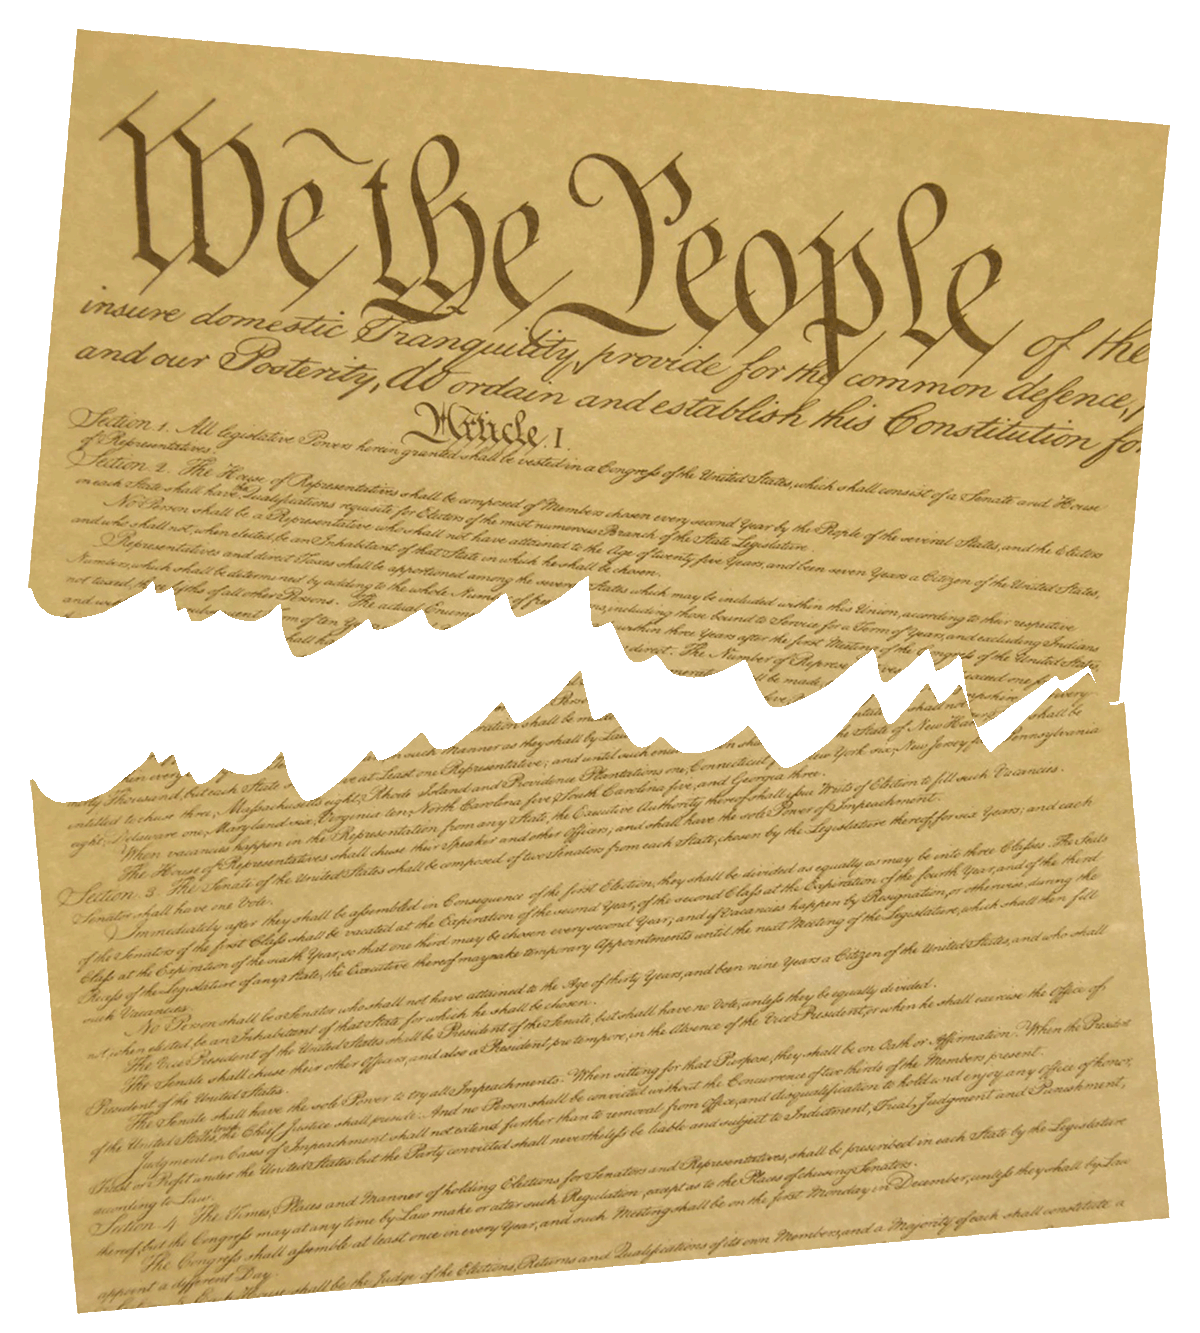 We the People
of the
insure domestic Tranquility, provide for the common defence,
and our Posterity, do ordain and establish this Constitution for
Article. I.
Section. 1. All legislative Powers herein granted shall be vested in a Congress of the United States, which shall consist of a Senate and House
of Representatives.
Section. 2. The House of Representatives shall be composed of Members chosen every second Year by the People of the several States, and the Electors
in each State shall have the Qualifications requisite for Electors of the most numerous Branch of the State Legislature.
No Person shall be a Representative who shall not have attained to the Age of twenty five Years, and been seven Years a Citizen of the United States,
and who shall not, when elected, be an Inhabitant of that State in which he shall be chosen.
Representatives and direct Taxes shall be apportioned among the several States which may be included within this Union, according to their respective
Numbers, which shall be determined by adding to the whole Number of free including those bound to Service for a Term of Years, and excluding Indians
not taxed, of all other Persons. The actual within three Years after the first Meeting of the Congress of the United States,
and direct. The Number of
shall be made,
shall be
such Manner as they shall by Law
at Least one Representative; and until such
thirty Thousand, but each State New York six, New Jersey Pennsylvania
entitled to chuse three, Massachusetts eight, Rhode Island and Providence Plantations one, Connecticut
eight, Delaware one, Maryland six, Virginia ten, North Carolina five, South Carolina five, and Georgia three.
When vacancies happen in the Representation from any State, the Executive Authority thereof shall issue Writs of Election to fill such Vacancies.
The House of Representatives shall chuse their Speaker and other Officers; and shall have the sole Power of Impeachment.
Section. 3. The Senate of the United States shall be composed of two Senators from each State, chosen by the Legislature thereof, for six Years; and each
Senator shall have one Vote.
Immediately after they shall be assembled in Consequence of the first Election, they shall be divided as equally as may be into three Classes. The Seats
of the Senators of the first Class shall be vacated at the Expiration of the second Year, of the second Class at the Expiration of the fourth Year, and of the third
Class at the Expiration of the sixth Year, so that one third may be chosen every second Year; and if Vacancies happen by Resignation, or otherwise, during the
Recess of the Legislature of any State, the Executive thereof may make temporary Appointments until the next Meeting of the Legislature, which shall then fill
such Vacancies.
No Person shall be a Senator who shall not have attained to the Age of thirty Years, and been nine Years a Citizen of the United States, and who shall
not, when elected, be an Inhabitant of that State for which he shall be chosen.
The Vice President of the United States shall be President of the Senate, but shall have no Vote, unless they be equally divided.
The Senate shall chuse their other Officers, and also a President pro tempore, in the Absence of the Vice President, or when he shall exercise the Office of
President of the United States.
The Senate shall have the sole Power to try all Impeachments. When sitting for that Purpose, they shall be on Oath or Affirmation. When the President
of the United States is tried, the Chief Justice shall preside: And no Person shall be convicted without the Concurrence of two thirds of the Members present.
Judgment in Cases of Impeachment shall not extend further than to removal from Office, and disqualification to hold and enjoy any Office of honor,
Trust or Profit under the United States: but the Party convicted shall nevertheless be liable and subject to Indictment, Trial, Judgment and Punishment,
according to Law.
Section. 4. The Times, Places and Manner of holding Elections for Senators and Representatives, shall be prescribed in each State by the Legislature
thereof; but the Congress may at any time by Law make or alter such Regulations, except as to the Places of chusing Senators.
The Congress shall assemble at least once in every Year, and such Meeting shall be on the first Monday in December, unless they shall by Law
appoint a different Day.
House shall be the Judge of the Elections, Returns and Qualifications of its own Members, and a Majority of each shall constitute a